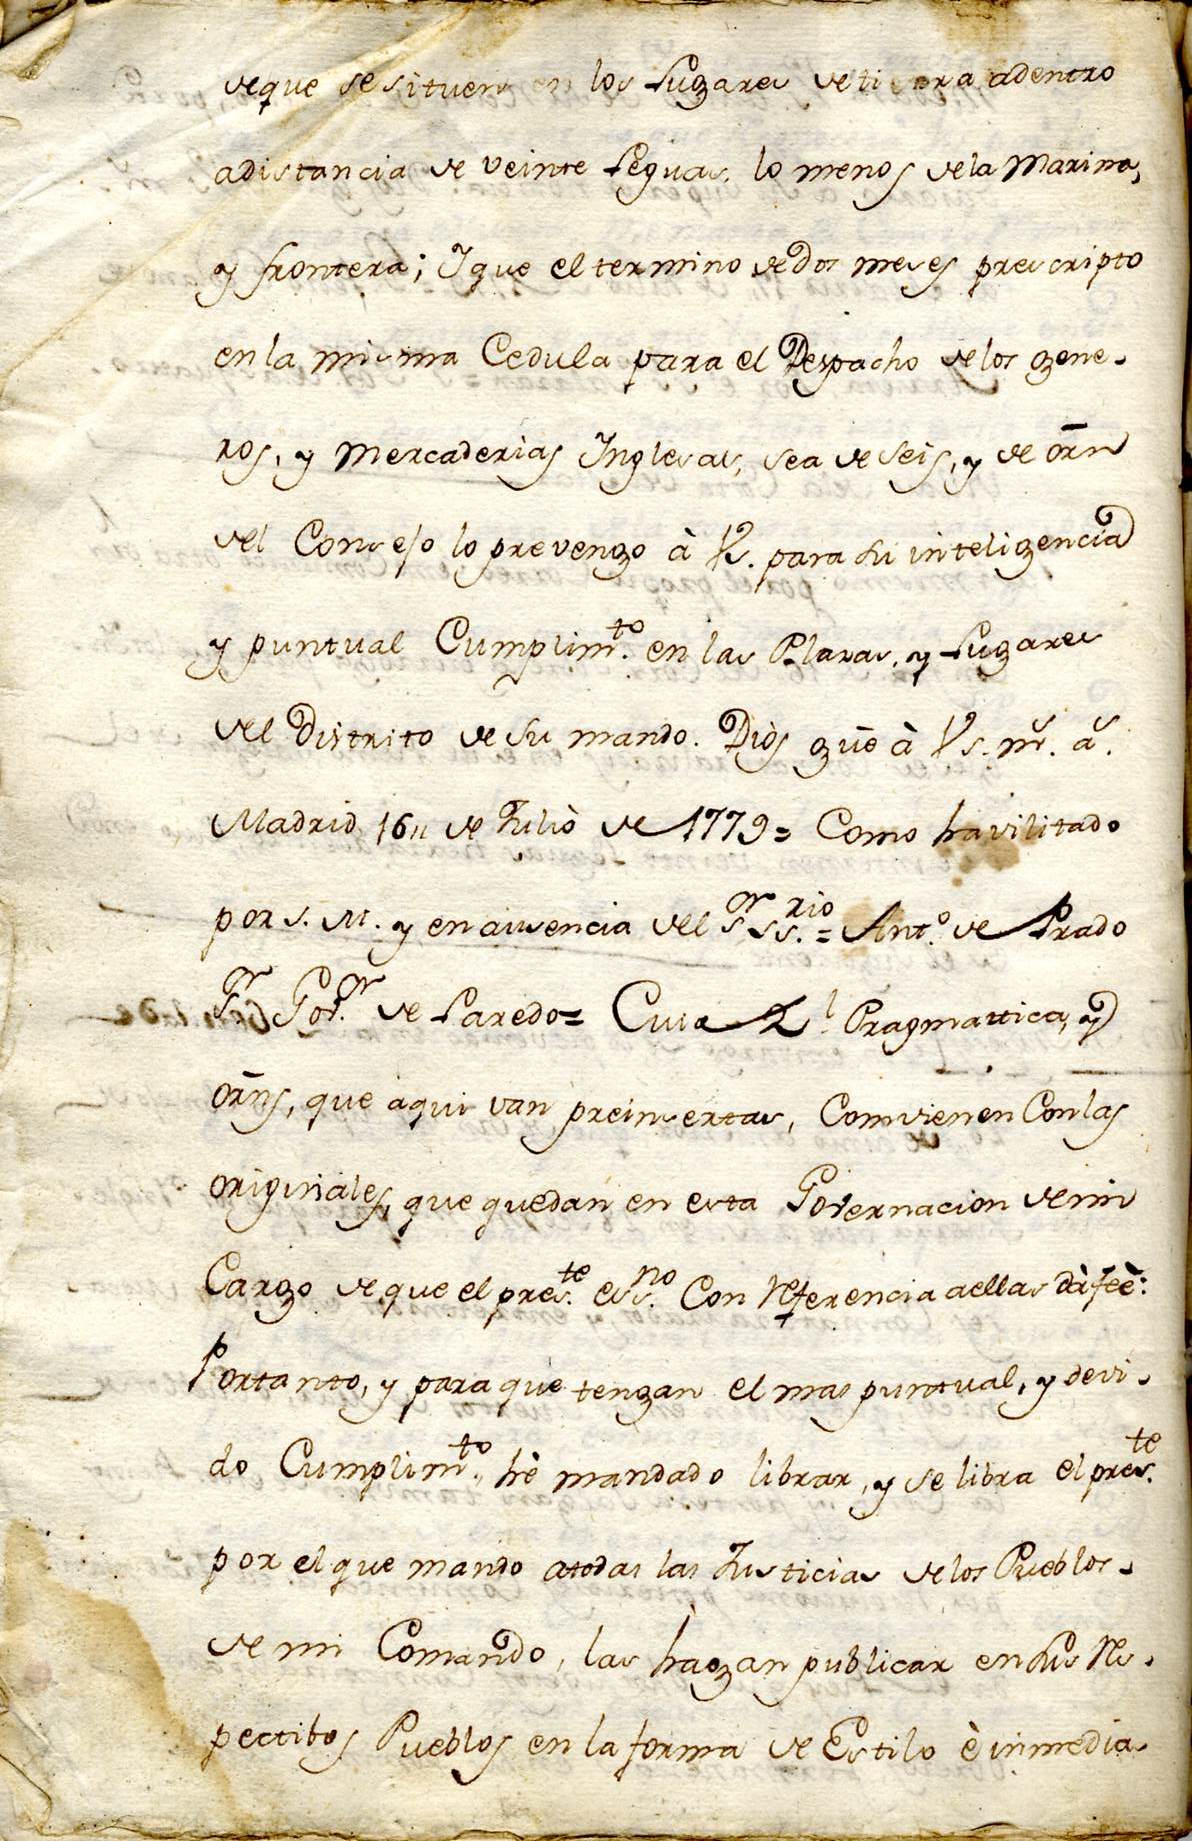 de que se situen en los Lugares de tierra adentro
a distancia de veinte Leguas, lo menos de la Marina,
y frontera; Y que el termino de dos meses prescripto
en la misma Cedula para el Despacho de los gene-
ros, y Mercaderias Inglesas, sea de seis, y de orn
del Consejo lo prevengo à Vs. para su inteligencia
y puntual Cumplimto. en las Plazas, y Lugares
del Distrito de su mando. Diòs gue à Vs. ms. as.
Madrid 16,, de Juliò de 1779= Como havilitado
por S. M. y en ausencia del Sor Ssrio.= Anto. de Prado
Sr Govor. de Laredo= Cuia Rl Pragmattica, y
orns, que aqui van preinsertas, Comvienen Con las
originales, que quedan en esta Governacion de mi
Cargo de que el preste. essno. Con Referencia a ellas dà feè:
Portanto, y para que tengan el mas puntual, y devi-
do Cumplimto., hè mandado librar, y se libra el preste.
por el que mando a todas las Justicias de los Pueblos-
de mi Comando, las hagan publicar en sus Res-
pectibos Pueblos en la forma de Estilo è inmedia-